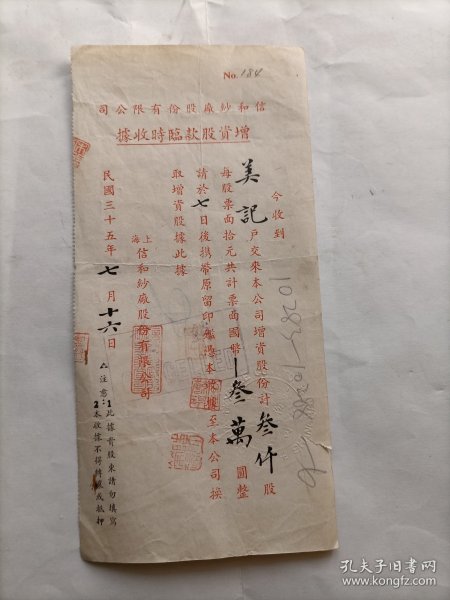 No. 184
司公限有份股廠紗和信
據收時臨款股資增
今收到
美記 戶交來本公司增資股份計 叁仟 股
每股票面拾元共計票面國幣 叁萬 圓整
請於 七 日後携帶原留印鑑憑本收據至本公司換
取增資股據此據
上海 信和紗廠股份有限公司
民國三十五年 七 月 十六 日
注意：1 此據背股東請勿填寫
2 本收據不得轉讓或抵押
孔夫子旧书网
www.kongfz.com